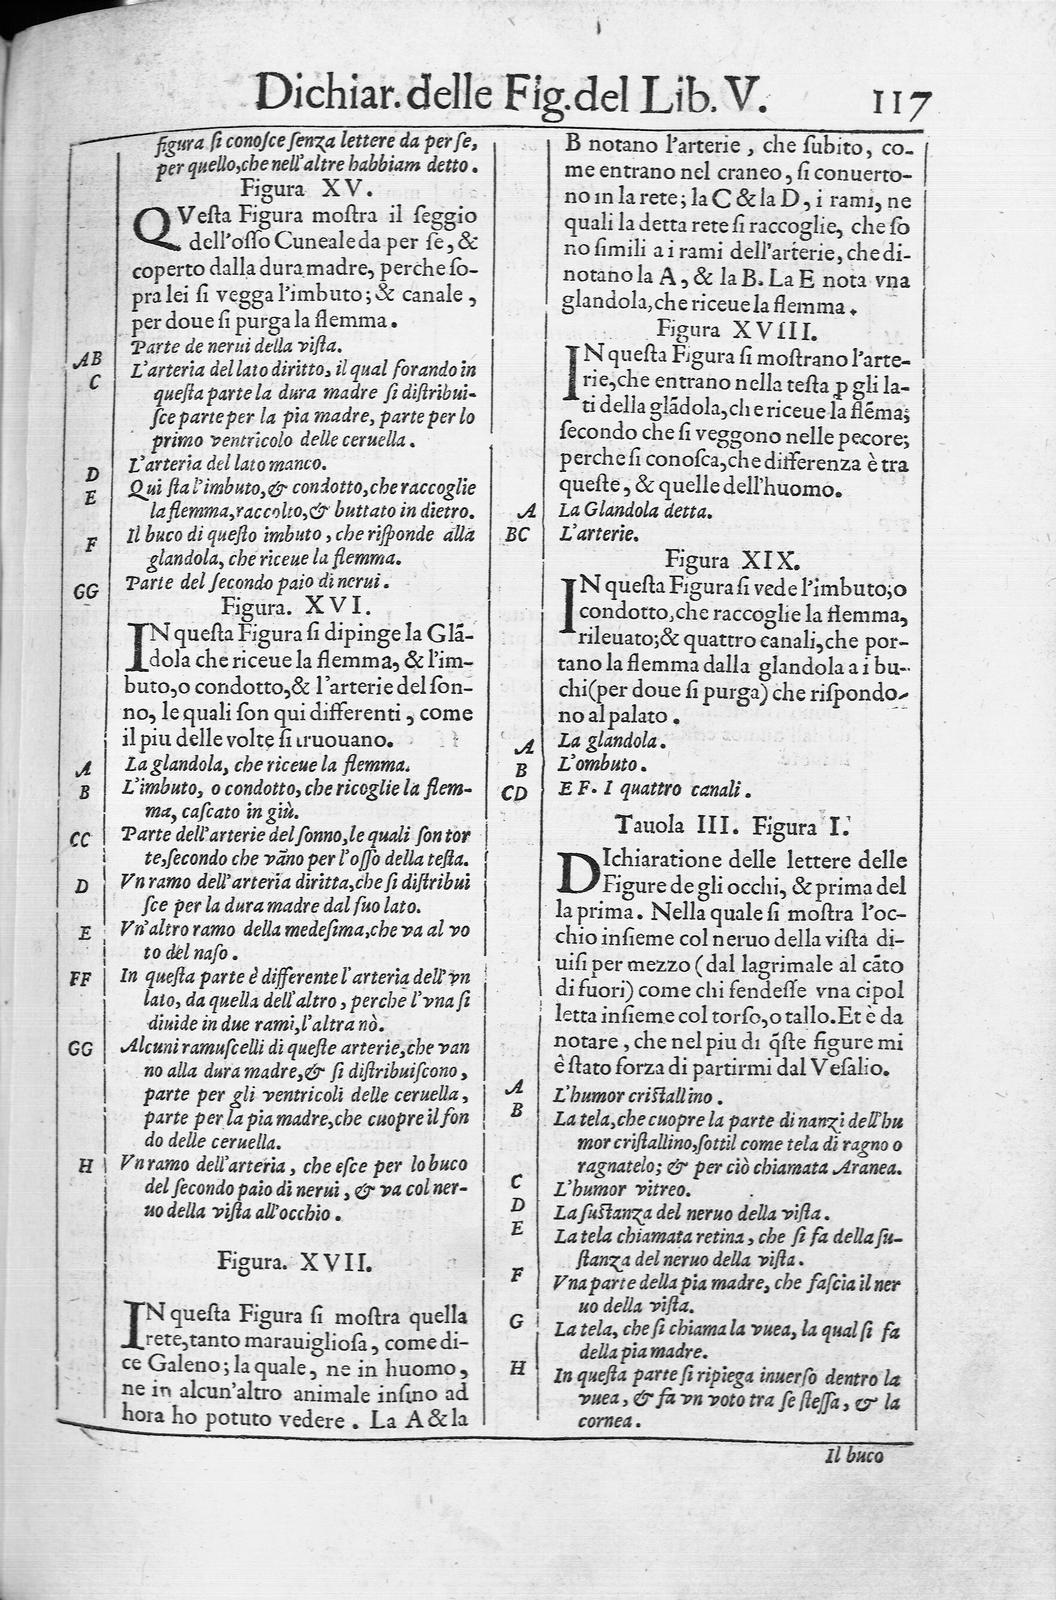 Dichiar. delle Fig. del Lib. V. 117
figura ſi conoſce ſenza lettere da per ſe,
per quello, che nell'altre habbiam detto.
Figura XV.
QVeſta Figura moſtra il ſeggio
dell'oſſo Cuneale da per ſe, &
coperto dalla dura madre, perche ſo-
pra lei ſi vegga l'imbuto; & canale,
per doue ſi purga la flemma.
AB Parte de nerui della viſta.
C L'arteria del lato diritto, il qual forando in
queſta parte la dura madre ſi diſtribui-
ſce parte per la pia madre, parte per lo
primo ventricolo delle ceruella.
D L'arteria del lato manco.
E Qui ſta l'imbuto, & condotto, che raccoglie
la flemma, raccolto, & buttato in dietro.
F Il buco di queſto imbuto, che riſponde alla
glandola, che riceue la flemma.
GG Parte del ſecondo paio di nerui.
Figura. XVI.
IN queſta Figura ſi dipinge la Glã-
dola che riceue la flemma, & l'im-
buto, o condotto, & l'arterie del ſon-
no, le quali ſon qui differenti, come
il piu delle volte ſi truouano.
A La glandola, che riceue la flemma.
B L'imbuto, o condotto, che ricoglie la flem-
ma, caſcato in giù.
CC Parte dell'arterie del ſonno, le quali ſon tor
te, ſecondo che vãno per l'oſſo della teſta.
D Vn ramo dell'arteria diritta, che ſi diſtribui
ſce per la dura madre dal ſuo lato.
E Vn'altro ramo della medeſima, che va al vo
to del naſo.
FF In queſta parte è differente l'arteria dell'vn
lato, da quella dell'altro, perche l'vna ſi
diuide in due rami, l'altra nò.
GG Alcuni ramuſcelli di queſte arterie, che van
no alla dura madre, & ſi diſtribuiſcono,
parte per gli ventricoli delle ceruella,
parte per la pia madre, che cuopre il fon
do delle ceruella.
H Vn ramo dell'arteria, che eſce per lo buco
del ſecondo paio di nerui, & va col ner-
uo della viſta all'occhio.
Figura. XVII.
IN queſta Figura ſi moſtra quella
rete, tanto marauiglioſa, come di-
ce Galeno; la quale, ne in huomo,
ne in alcun'altro animale inſino ad
hora ho potuto vedere. La A & la
B notano l'arterie, che ſubito, co-
me entrano nel craneo, ſi conuerto-
no in la rete; la C & la D, i rami, ne
quali la detta rete ſi raccoglie, che ſo
no ſimili a i rami dell'arterie, che di-
notano la A, & la B. La E nota vna
glandola, che riceue la flemma.
Figura XVIII.
IN queſta Figura ſi moſtrano l'arte-
rie, che entrano nella teſta p gli la-
ti della glãdola, che riceue la flẽma;
ſecondo che ſi veggono nelle pecore;
perche ſi conoſca, che differenza è tra
queſte, & quelle dell'huomo.
A La Glandola detta.
BC L'arterie.
Figura XIX.
IN queſta Figura ſi vede l'imbuto; o
condotto, che raccoglie la flemma,
rileuato; & quattro canali, che por-
tano la flemma dalla glandola a i bu-
chi (per doue ſi purga) che riſpondo-
no al palato.
A La glandola.
B L'ombuto.
CD E F. I quattro canali.
Tauola III. Figura I.
DIchiaratione delle lettere delle
Figure de gli occhi, & prima del
la prima. Nella quale ſi moſtra l'oc-
chio inſieme col neruo della viſta di-
uiſi per mezzo (dal lagrimale al cãto
di fuori) come chi fendeſſe vna cipol
letta inſieme col torſo, o tallo. Et è da
notare, che nel piu di q̃ſte figure mi
è ſtato forza di partirmi dal Veſalio.
A L'humor criſtallino.
B La tela, che cuopre la parte dinanzi dell'hu
mor criſtallino, ſottil come tela di ragno o
ragnatelo; & per ciò chiamata Aranea.
C L'humor vitreo.
D La ſuſtanza del neruo della viſta.
E La tela chiamata retina, che ſi fa della ſu-
ſtanza del neruo della viſta.
F Vna parte della pia madre, che faſcia il ner
uo della viſta.
G La tela, che ſi chiama la vuea, la qual ſi fa
della pia madre.
H In queſta parte ſi ripiega inuerſo dentro la
vuea, & fa vn voto tra ſe ſteſſa, & la
cornea.
Il buco